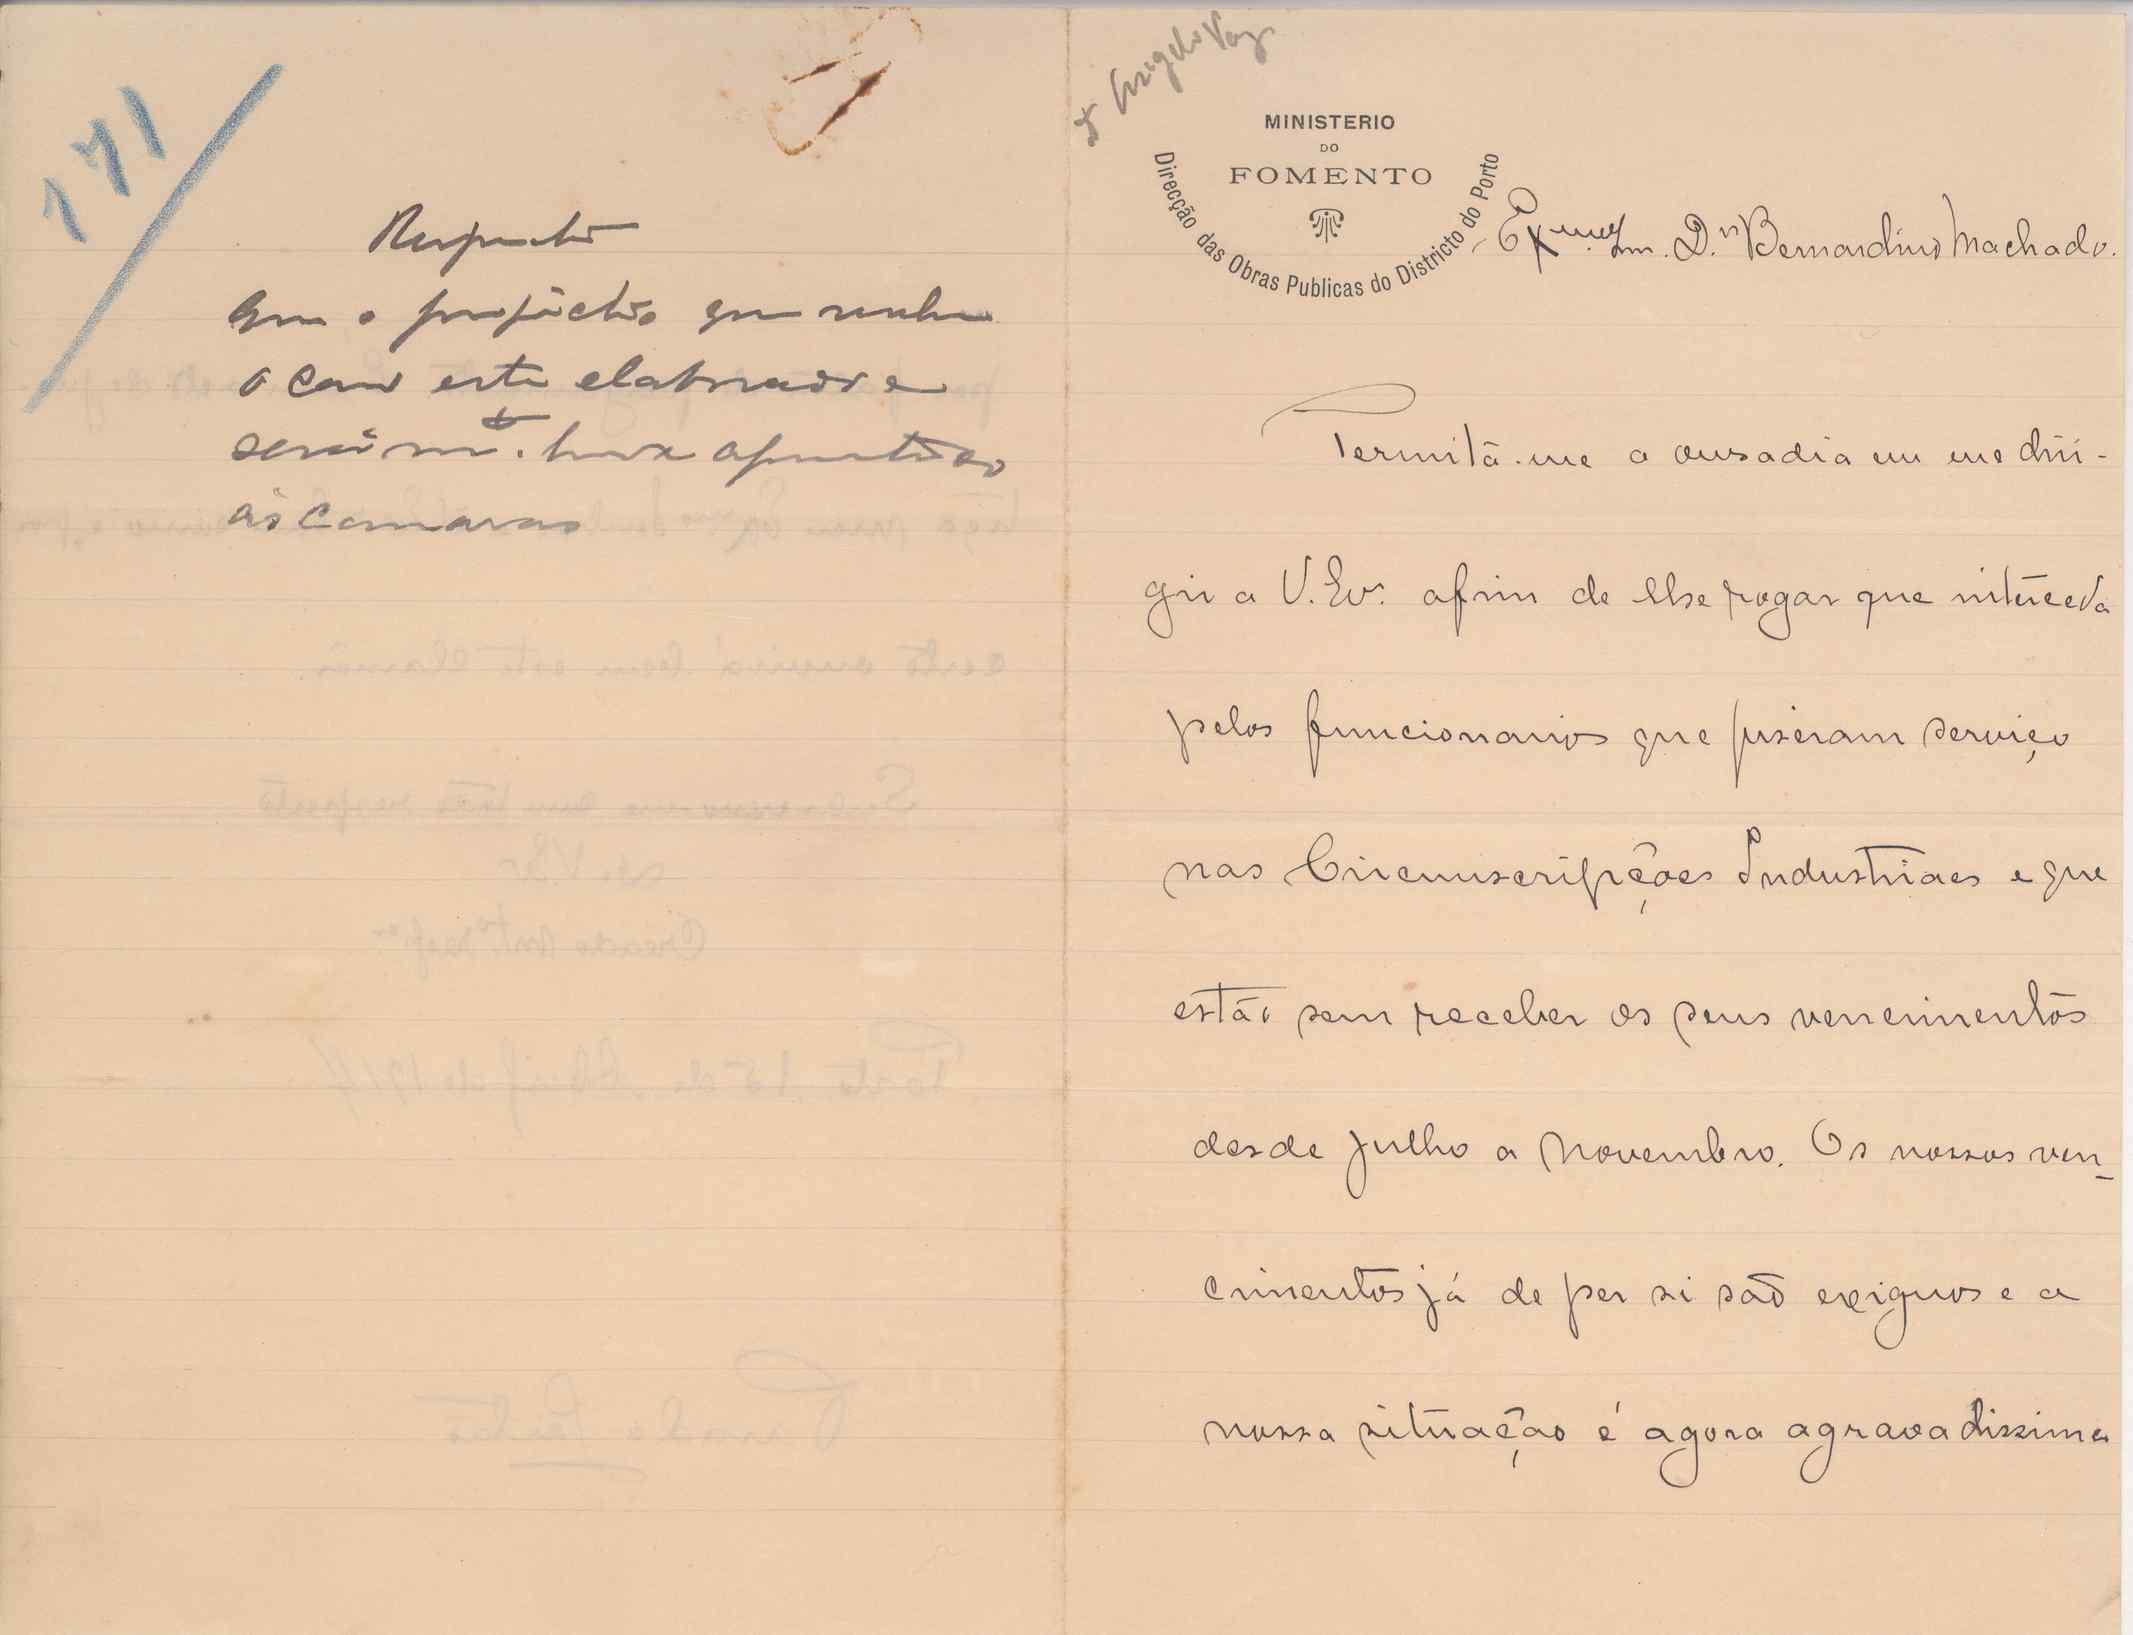 171
Respondido
que o projecto que resolve
o caso está elaborado e
será m.to breve apresentado
ás Camaras
MINISTERIO
DO
FOMENTO
Direcção das Obras Publicas do Districto do Porto
Angelo Vaz
Ex.mo Snr. D.r Bernardino Machado.
Permita-me a ousadia em me diri-
gir a V. Ex.ª afim de lhe rogar que interceda
pelos funcionarios que fiseram serviço
nas Circumscripções Industriaes e que
estão sem receber os seus vencimentos
desde julho a Novembro. Os nossos ven-
cimentos já de per si são exiguos e a
nossa situação é agora agravadissima